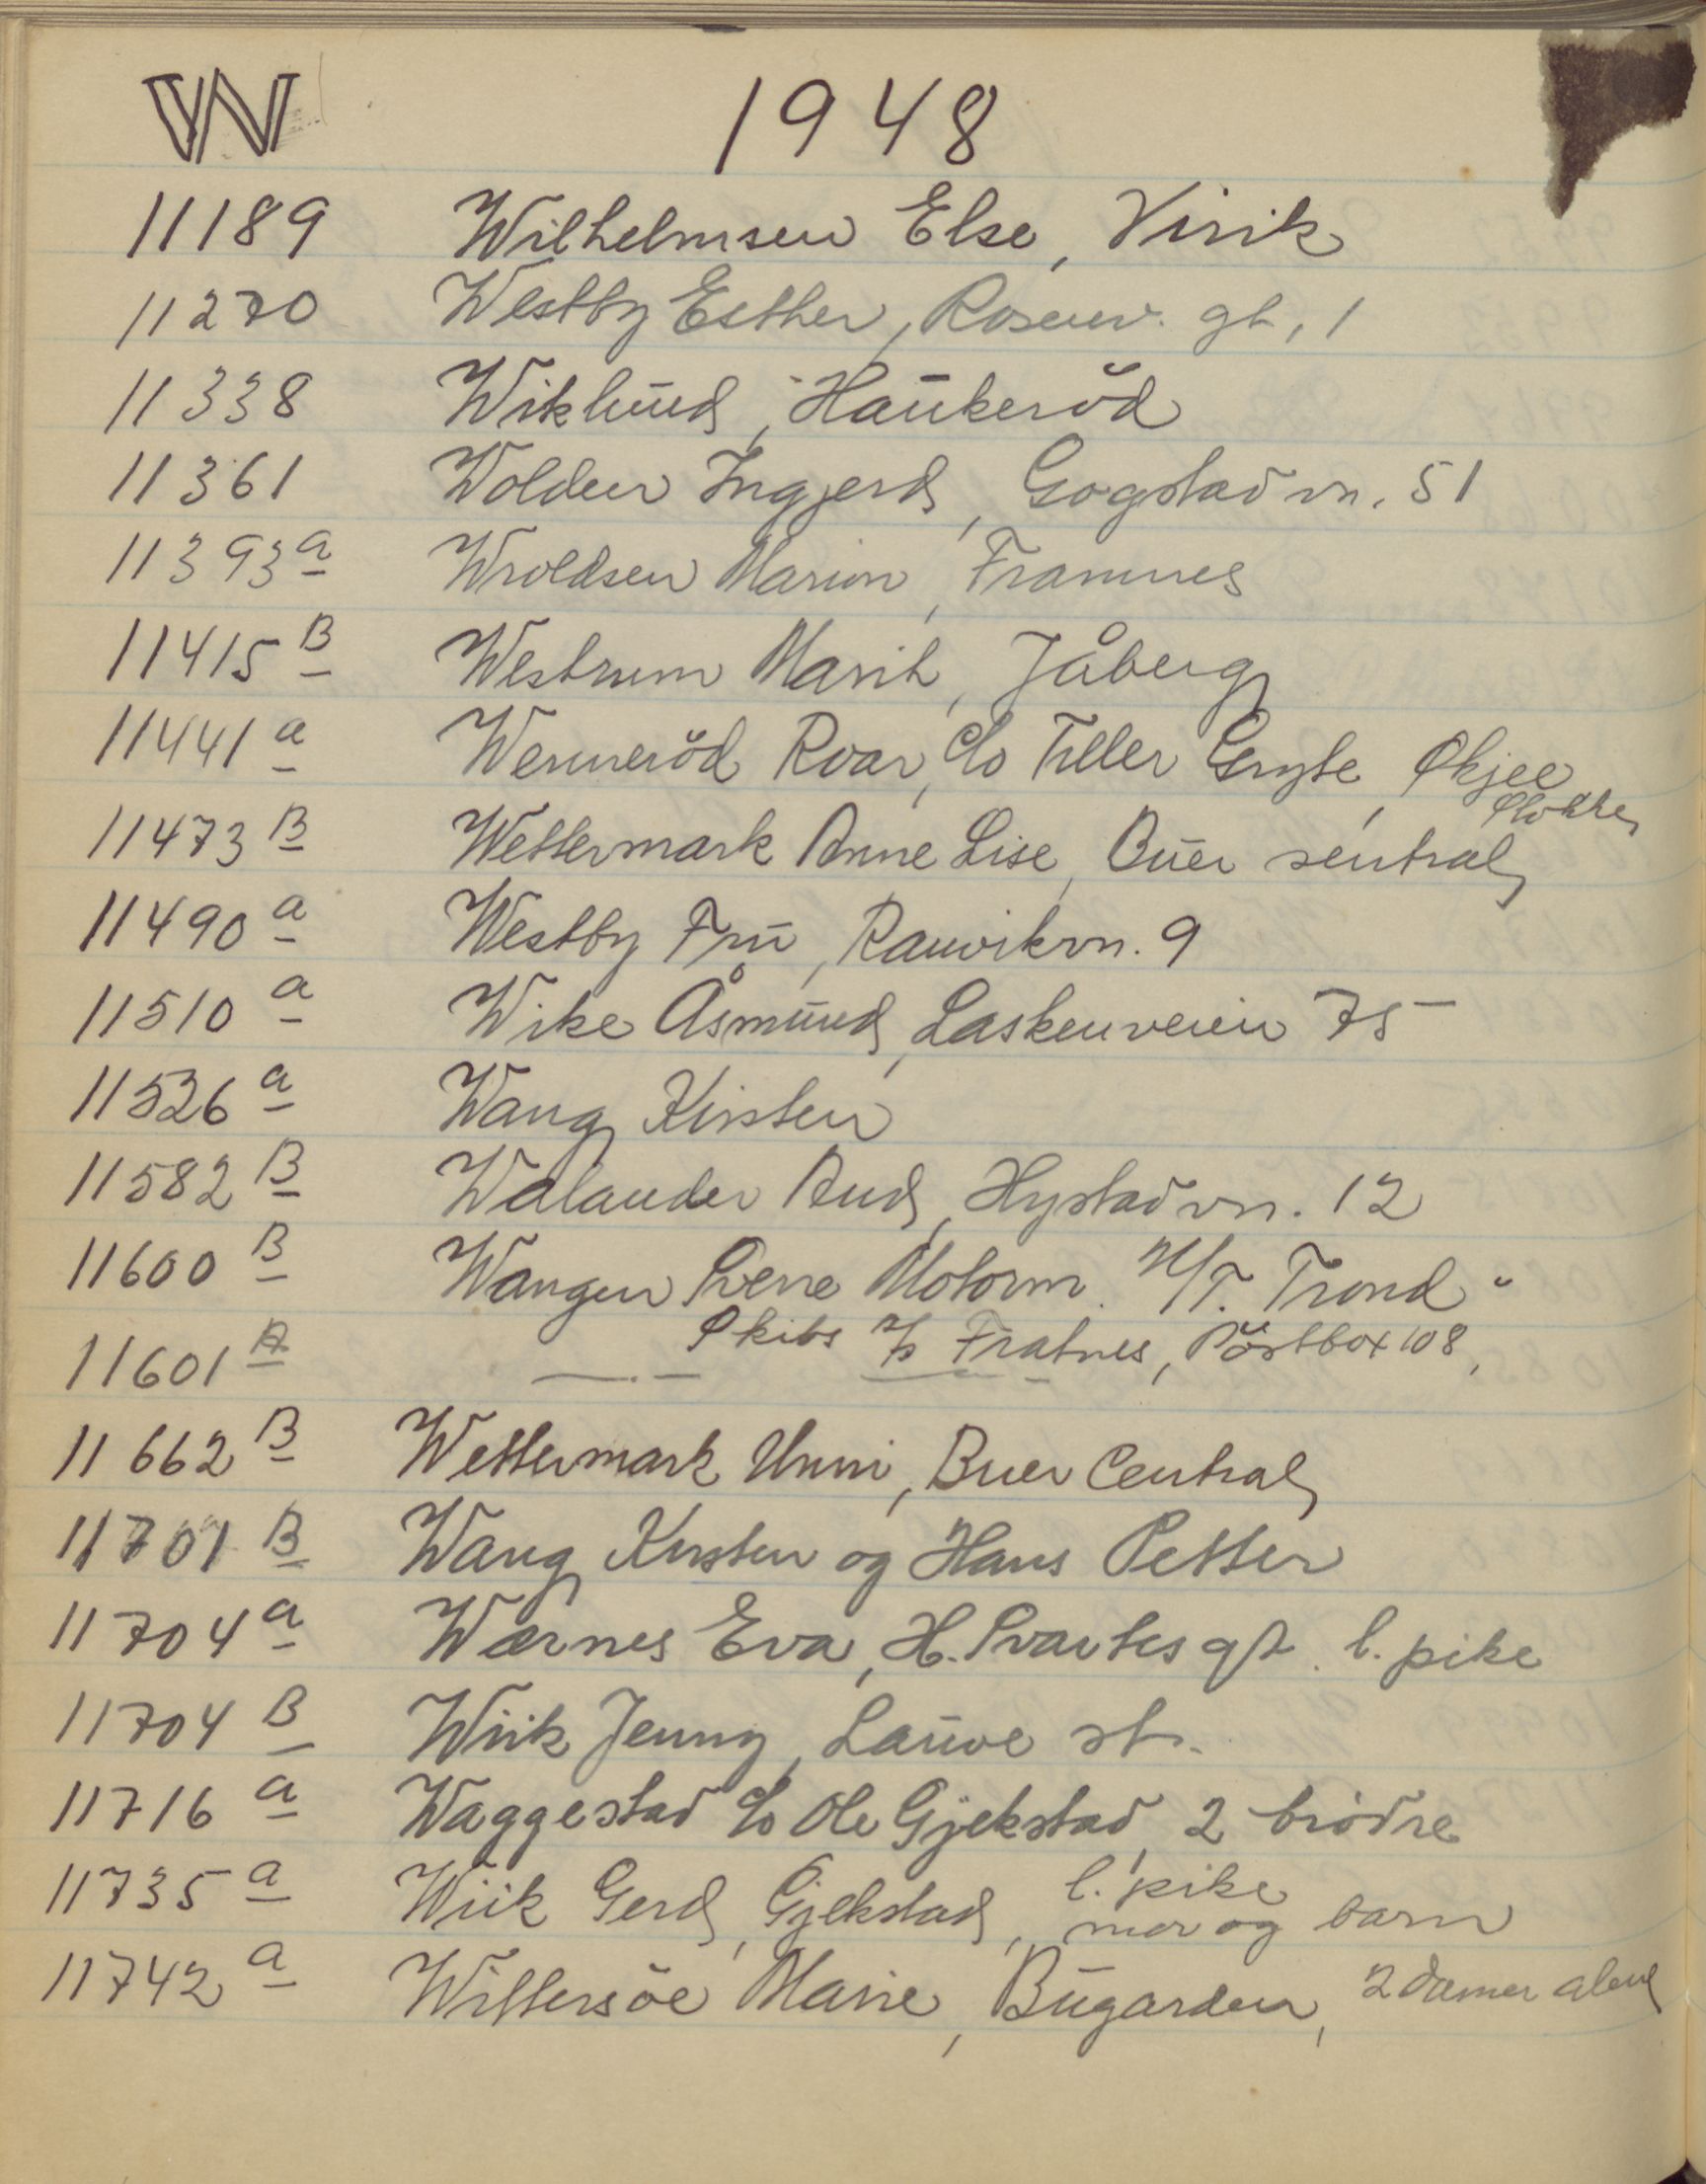 W 1948
11189 Wilhelmsen Else, Virik
11270 Westby Esther, Rosenv. gt, 1
11338 Wiklund, Haukerød
11361 Wolden Ingjerd, Gogstadvn. 51
11393 a Wroldsen Marion, Framnes
11415 B Westrum Marit, Jåberg
11441 a Wennerød Roar, c/o Tiller Gryte, Skjee
Stokke
11473 B Wettermark Anne Lise, Buer sentral
11490 a Westby Fru, Ranvikvn. 9
11510 a Wike Åsmund, Laskenveien 75
11526 a Wang Kirsten
11582 B Walander Aud, Hystadvn. 12
11600 B Wangen Sverre Motorm. M/T. Trond "
Skibs A/S Fratnes, Postbox 108,
11601 A
11662 B Wettermark Unni, Buer Central
11701 B Wang Kirsten og Hans Petter
11704 a Wærnes Eva, H. Svartes gt. l. pike
11704 B Wiik Jenny, Lauve st.
11716 a Waggestad c/o Ole Gjekstad, 2 brødre
11735 a Wiik Gerd, Gjekstad, l. pike
mor og barn
11742 a Wittersøe Marie, Bugarden, 2 damer alene